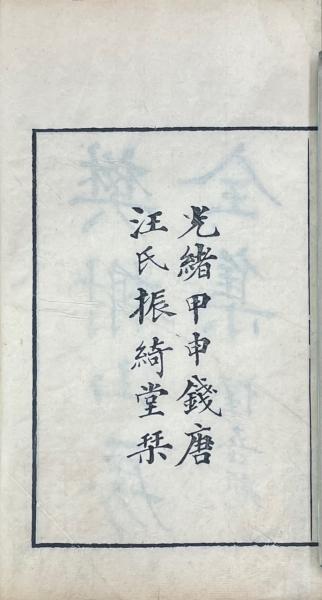 光緒甲申錢唐
汪氏振綺堂栞